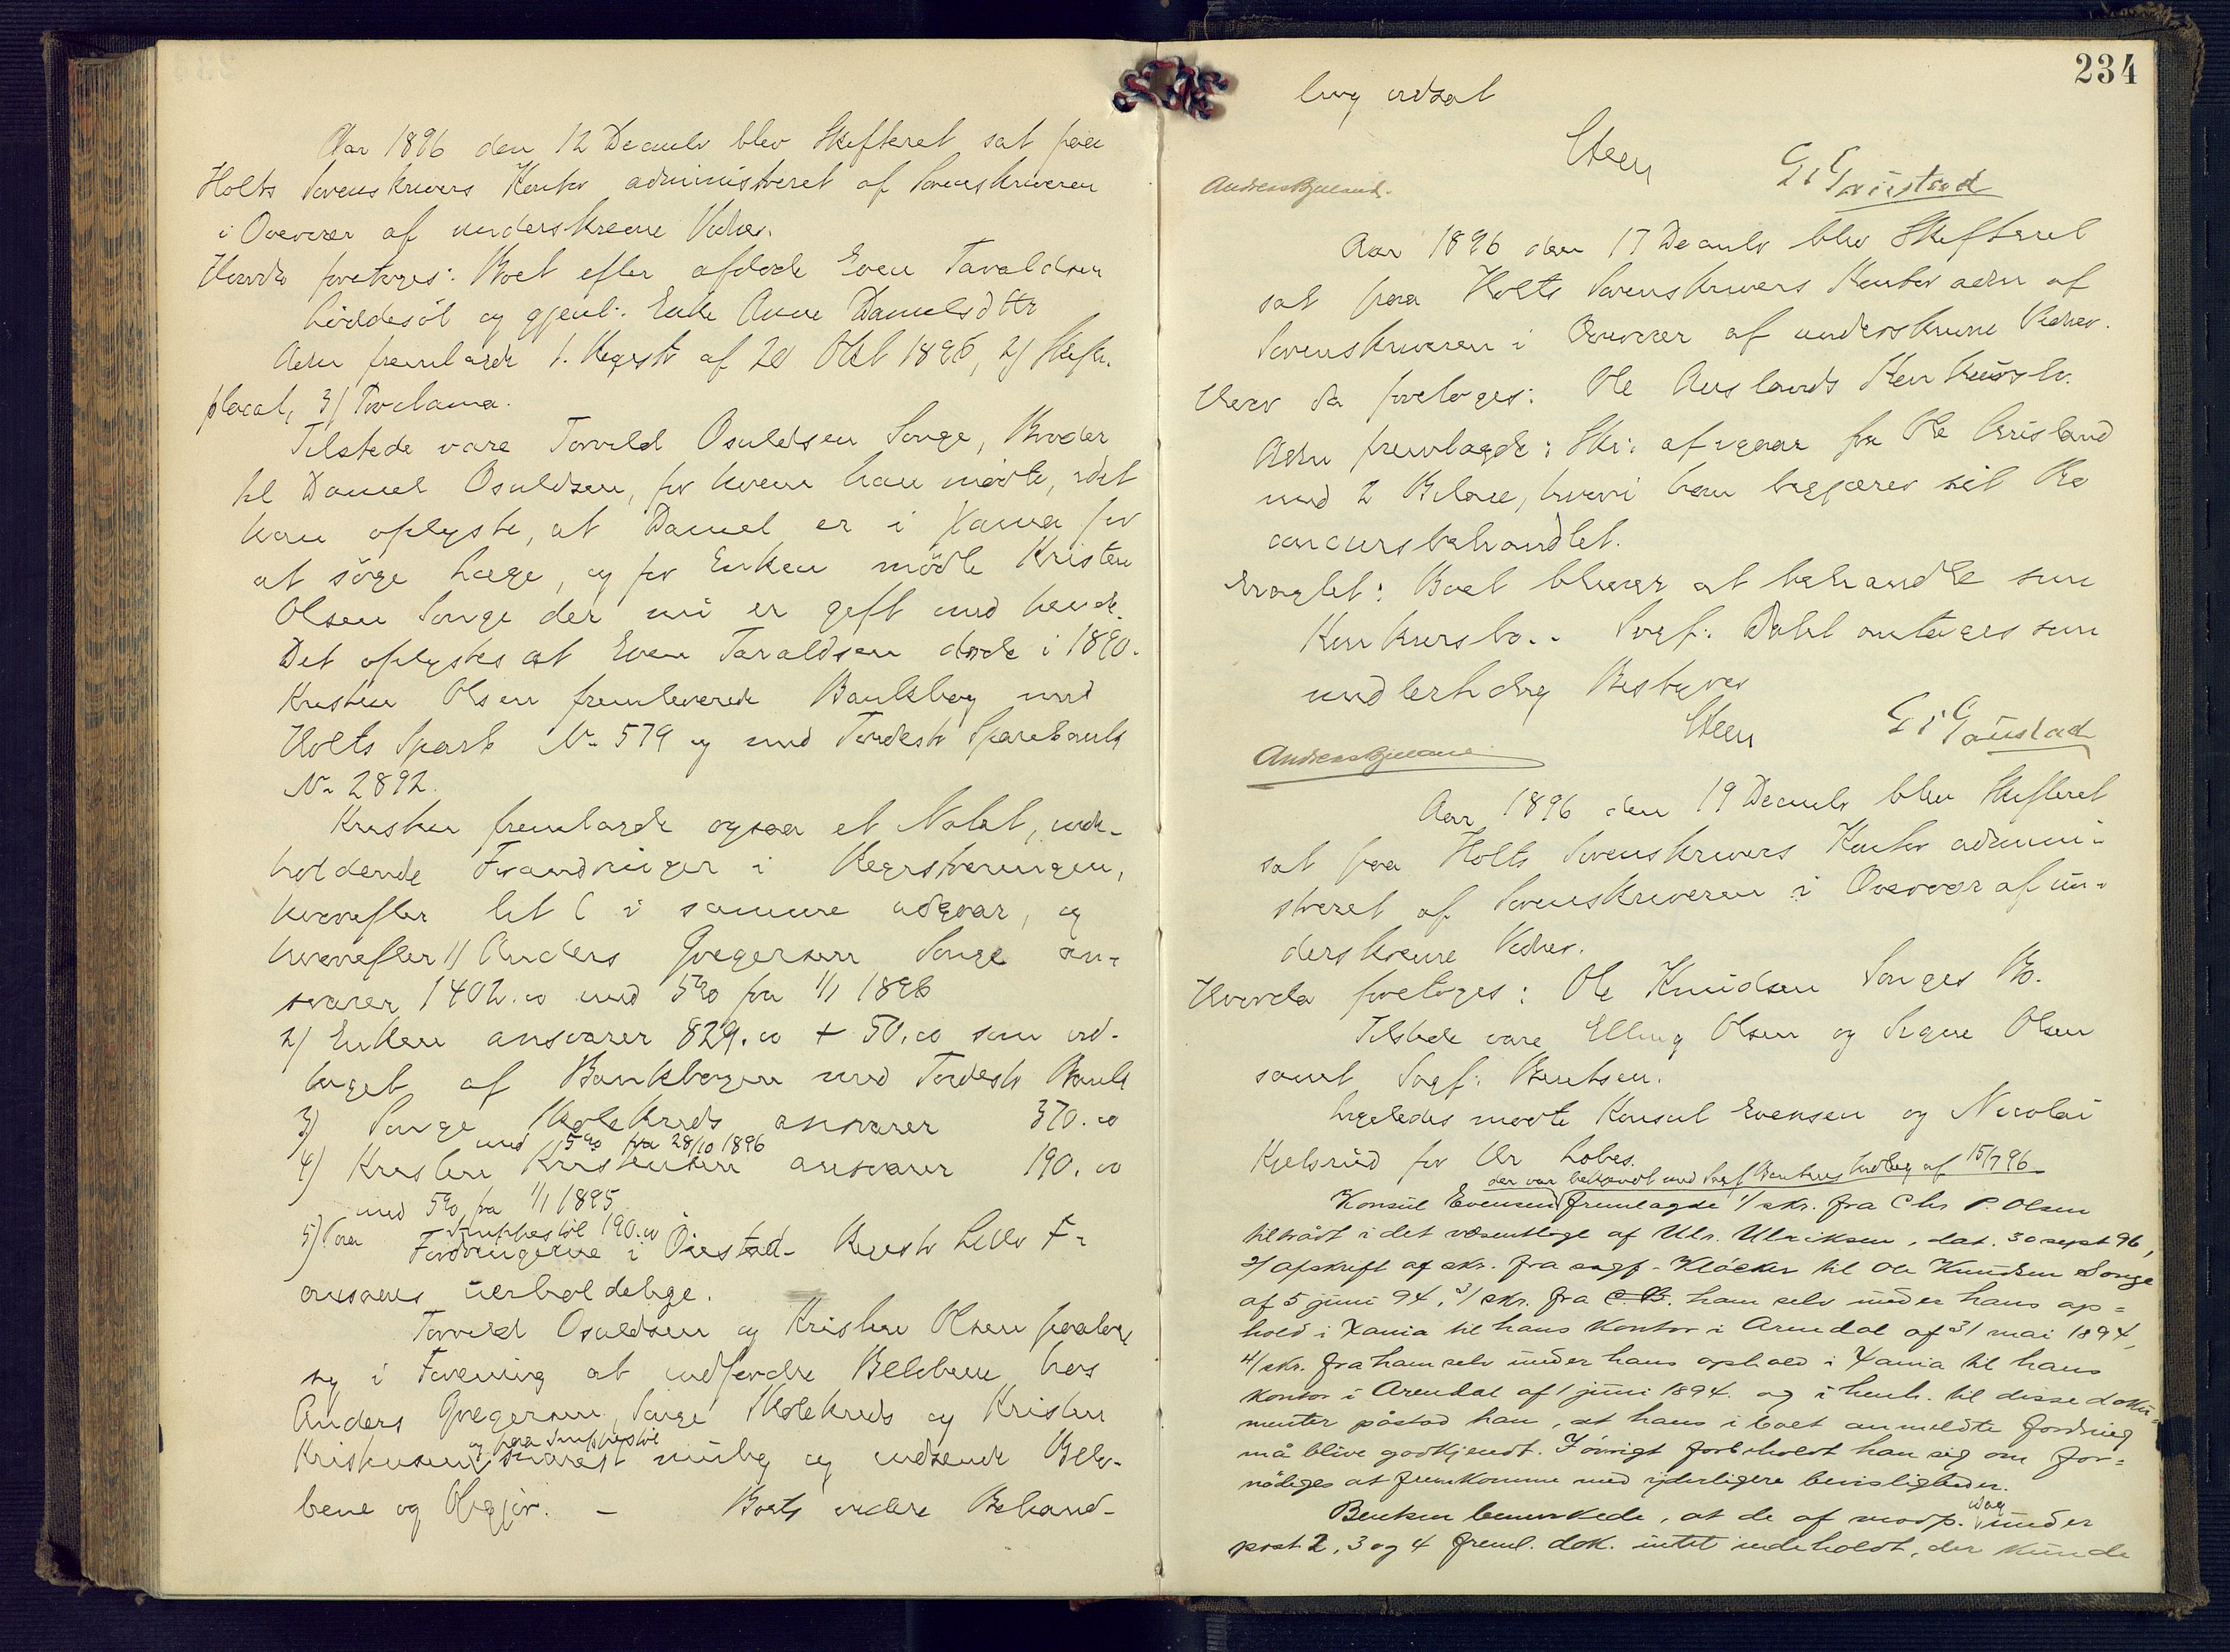 Aar 1896 den 12 Decemb blev Skifteret sat paa
Holts Sorenskrivers Kontor administreret af Sorenskriveren
i Overvær af underskrevne Vidner.
Hvorda foretoges: Boet efter afdøde Even Taraldsen
Löddesöl og gjenl. Enke Anne Danielsdttr
Adm fremlagde 1. Registr af 28 Okt 1896, 2) Skifte
placat, 3) Proclama.
Tilstede vare Torvild Osuldsen Songe, Broder
til Daniel Osuldsen, for hvem han mødte, idet
han oplyste, at Daniel er i Xania for
at söge Læge, og for Enken mödte Kristen
Olsen Songe der nu er gift med hende.
Det oplystes at Even Taraldsen døde i 1890.
Kristen Olsen fremleverede Bankbog med
Holts Sparb No 579 og med Tvedestr Sparebank
No 2892.
Kristen fremlagde ogsaa et Notat, inde-
holdende Forandringer i Registreringen,
hvorefter lit C i samme udgaar, og
hvorefter 1) Anders Gregersen Songe an-
svarer 1402.00 med 5% fra 1/1 1896
2) Enken ansvarer 829.00 + 50.00 som ud-
taget af Bankbogen med Tvedestr Bank
3) Songe Skolekreds ansvarer 370.00
med 5% fra 28/10 1896
4) Kristen Kristensen ansvarer 190.00
med 5% fra 1/1 1895
5) Paa Snuphestöl 190.00
Fordringerne i Öiestad Registr Litr F-
ansees uerholdelige.
Torvild Osuldsen og Kristen Olsen paatog
sig i Forening at indfordre Beløbene hos
Anders Gregersen, Songe Skolekreds og Kristen
og paa Snuphestöl
Kristensen snarest mulig og indsende Belø-
bene og Opgjør. – Boets videre Behand-
234
ling udsat
Steen G i Gaustad
Andreas Bjelland
Aar 1896 den 17 Decemb blev Skifteret
sat paa Holts Sorenskrivers Kontor adm af
Sorenskriveren i Overvær af underskrevne Vidner.
Hvor da foretoges: Ole Auslands Konkursbo.
Adm fremlagde: Skr. af igaar fra Ole Ausland
med 2 Bilage, hvori han begjærer sit Bo
concursbehandlet.
Eragtet: Boet bliver at behandle som
Konkursbo. Sagf. Dahl antages som
midlertidig Bestyrer
Steen G i Gaustad
Andreas Bjelland
Aar 1896 den 19 Decemb blev Skifteret
sat paa Holts Sorenskrivers Kontor admini-
streret af Sorenskriveren i Overvær af un-
derskrevne Vidner.
Hvorda foretoges: Ole Knudsen Songes Bo.
Tilstede vare Elling Olsen og Signe Olsen
samt Sagf. Bentsen.
Ligeledes mødte Konsul Evensen og Nicolai
Kjelsrud for Chr Lobes.
der var bekjendt med Sagf Bentsens Indlæg af 15/7 96
Konsul Evensen fremlagde 1/ skr. fra Chr P. Olsen
tiltrådt i det væsentlige af Ulr. Ulriksen, dat. 30 sept 96,
2/ afskrift af skr. fra sagf. Klöcker til Ole Knudsen Songe
af 5 juni 94, 3/ skr. fra ham selv under hans op=
hold i Xania til hans Kontor i Arendal af 31 mai 1894,
4/ skr. fra ham selv under hans ophold i Xania til hans
kontor i Arendal af 1 juni 1894. og i henh. til disse doku=
menter påstod han, at hans i boet anmeldte fordring
må blive godkjendt. Iövrigt forbeholdt han sig om for=
nödiges at fremkomme med yderligere bevisligheder.
idag
Bentsen bemærkede, at de af modp. under
post 2, 3 og 4 freml. dok. intet indeholdt, der kunde